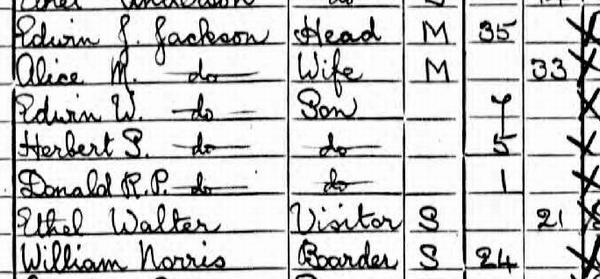 Edwin J. Jackson Head M 35
Alice M. do Wife M 33
Edwin W. do Son 7
Herbert S. do do 5
Donald R.P. do do 1
Ethel Walter Visitor S 21
William Norris Boarder S 24